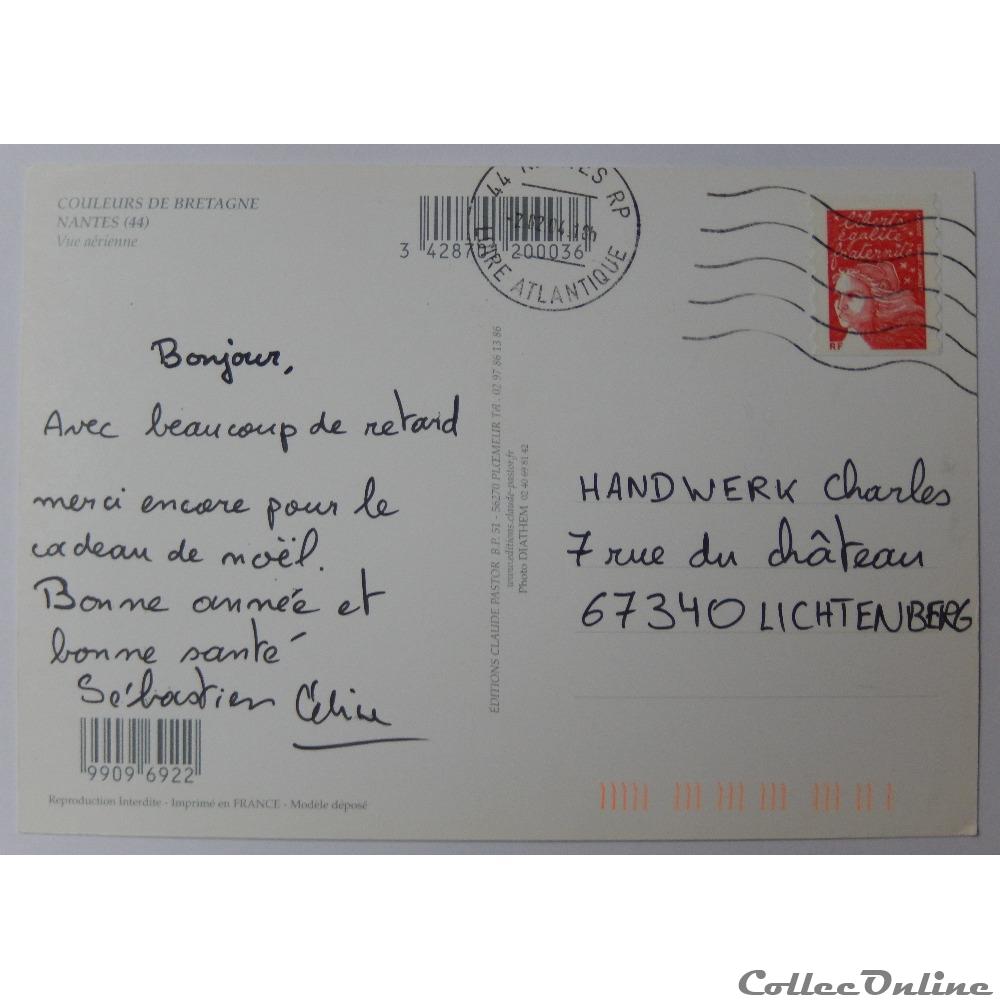 COULEURS DE BRETAGNE
NANTES (44)
Vue aérienne
3 428701 200036
44 NANTES RP
LOIRE ATLANTIQUE
liberté
égalité
fraternité
RF
Bonjour,
Avec beaucoup de retard
merci encore pour le
cadeau de noël.
Bonne année et
bonne santé
Sébastien Céline
HANDWERK Charles
7 rue du château
67340 LICHTENBERG
EDITIONS CLAUDE PASTOR B.P. 51 - 56270 PLŒMEUR Tél. 02 97 86 13 86
www.editions.claude-pastor.fr
Photo DIATHEM 02 40 69 81 42
9909 6922
Reproduction Interdite - Imprimé en FRANCE - Modèle déposé
CollecOnline